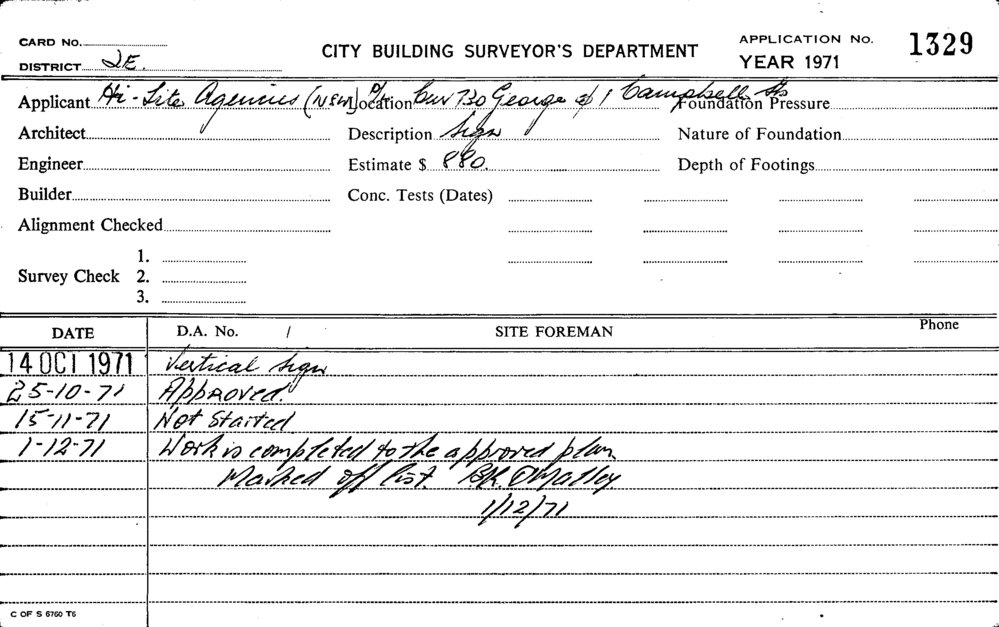 CARD No.
CITY BUILDING SURVEYOR'S DEPARTMENT
APPLICATION No. 1329
DISTRICT 2E.
YEAR 1971
Applicant Hi-Lite Agencies (NSW) P/L Location Cnr 730 George & 1 Campbell Sts Foundation Pressure
Architect Description Sign Nature of Foundation
Engineer Estimate $ 880. Depth of Footings
Builder Conc. Tests (Dates)
Alignment Checked
1.
Survey Check 2.
3.
DATE D.A. No. / SITE FOREMAN Phone
14 OCT 1971 Vertical sign
25-10-71 Approved.
15-11-71 Not Started
1-12-71 Work is completed to the approved plan
Marked off list. B.K. O'Malley
1/12/71
C OF S 6760 T6